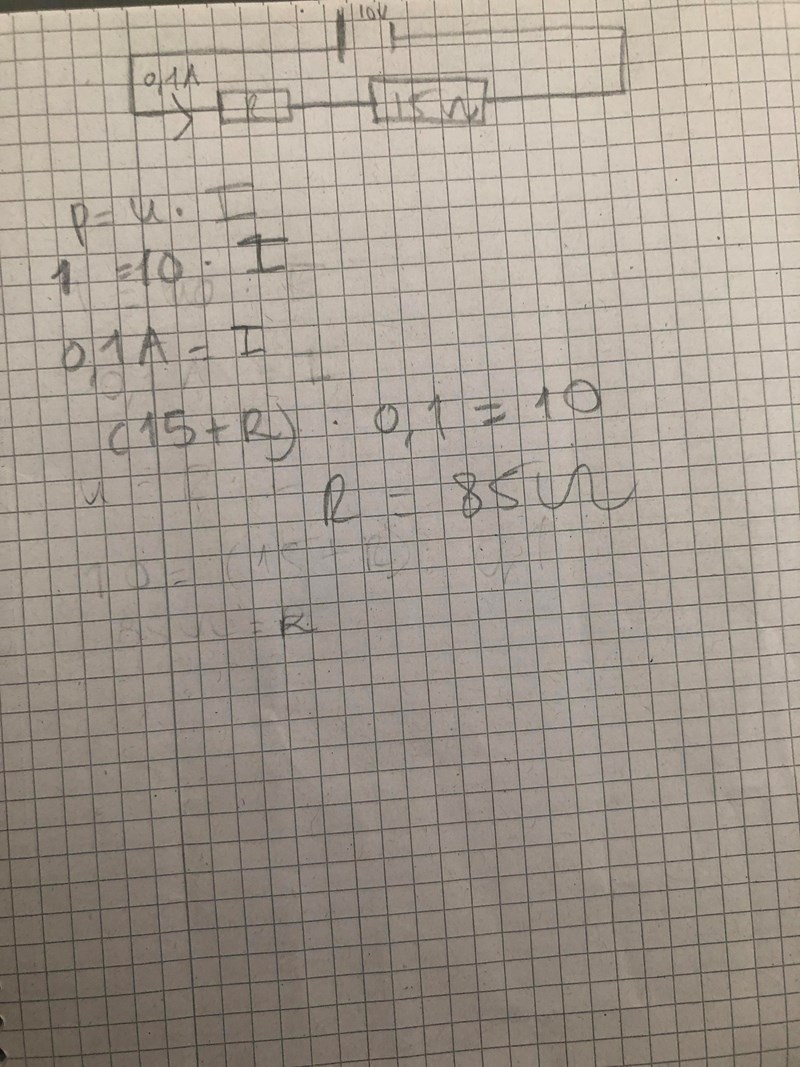 10V
0,1A
R
15Ω
P = U · I
1 = 10 · I
0,1 A = I
(15 + R) · 0,1 = 10
U =
R = 85 Ω
10 = (15 + R)
= R